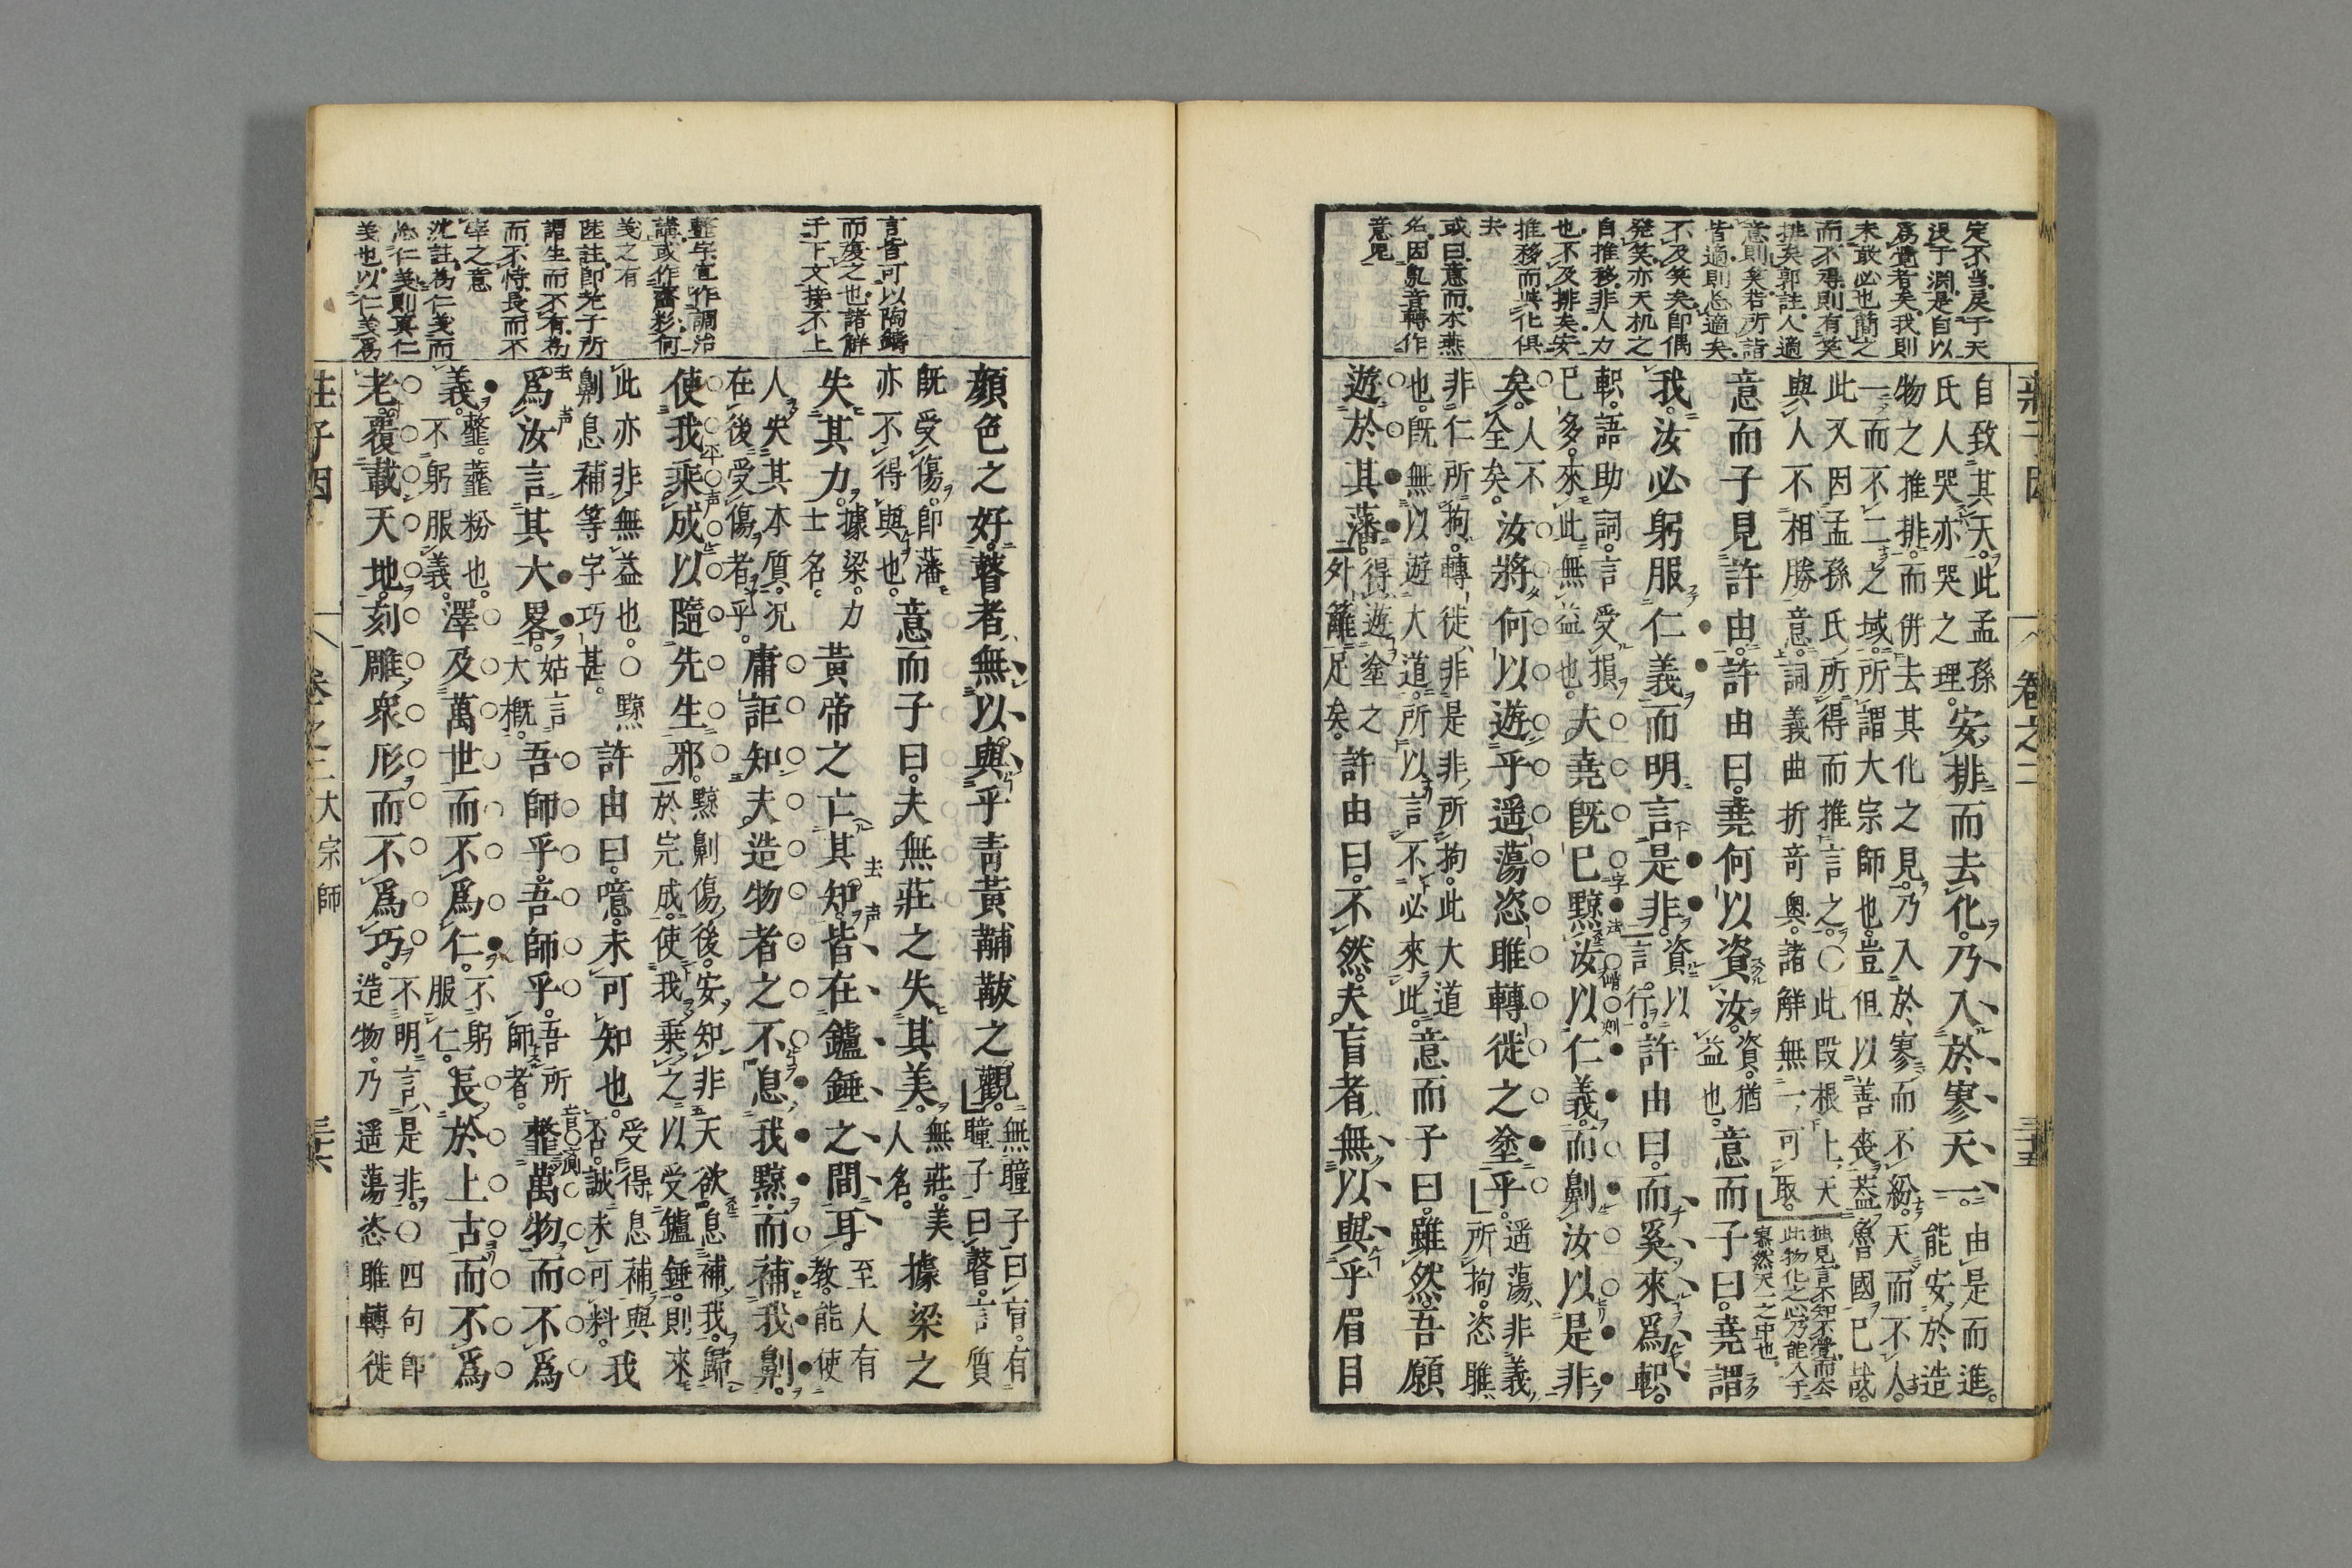 定不当戾于天
没于淵是自以
爲覺者矣我則
未敢必也簡之
而不得則有笑
排矣郭註人適
意則笑若所詣
皆適則忘適矣
不及笑矣即偶
発笑亦天机之
自推移非人力
也不及排矣安
推移而與化俱
去
或曰意而不燕
名因鳥音轉作
意児
莊子因 卷之二 三十五
自致其天。此孟孫
氏人哭亦哭之理。
安排而去化。乃入於寥天一。
由是而進。
能安於造
物之推排。而併去其化之見。乃入於寥而不紛。天而不人。
一而不二之域。所謂大宗師也。豈但以善喪蓋魯國已哉。
此又因孟孫氏。所得而推言之。○此段根上天
與人不相勝意。詞義曲折奇奧。諸解無一可取。
獨見言不知不覺而去
此物化之心乃能入于
寥然天一之中也。
意而子見許由。許由曰。堯何以資汝。
資。猶
益也。
意而子曰。堯謂
我。汝必躬服仁義。而明言是非。
資以
言行。
許由曰。而奚來爲軹。
軹。語助詞。言受損
已多。來此無益也。
夫堯既已黥汝以仁義。而劓汝以是非
矣。
人不
全矣。
汝將何以遊乎遥蕩恣睢轉徙之塗乎。
遥蕩、非義
所拘。恣睢、
非仁所拘。轉徙、非是非所拘。此大道
也。既無以遊大道。所以言不必來此。
意而子曰。雖然。吾願
遊於其藩。
得遊塗之
外籬足矣。
許由曰。不然。夫盲者、無以與乎眉目
言皆可以陶鑄
而復之也諸解
于下文接不上
韲字宜作調治
講或作齎杉何
義之有
陸註即老子所
謂生而不有爲
而不恃長而不
宰之意
沈註爲仁義而
忘仁義則真仁
義也以仁義爲
顔色之好。瞽者、無以與乎青黃黼黻之觀。
無瞳子曰盲。有
瞳子曰瞽。言質
既受傷。即藩
亦不得與也。
意而子曰。夫無莊之失其美。
無莊。美
人名。
據梁之
失其力。
據梁。力
士名。
黄帝之亡其知。皆在鑪錘之間耳。
至人有
教。能使
人失其本質。况
在後受傷者乎。
庸詎知夫造物者之不息我黥。而補我劓。
使我乘成以隨先生邪。
黥劓傷後。安知非天欲息補我。歸
於完成。使我乗之以受鑪錘。則來
此亦非無益也。○黥
劓息補等字巧甚。
許由曰。噫。未可知也。
受得息補與
否。誠未可料。
我
爲汝言其大畧。
姑言
大概。
吾師乎。吾師乎。
吾所
師者。
韲萬物而不爲
義。
韲。韲粉也。
不躬服義。
澤及萬世而不爲仁。
不躬
服仁。
長於上古而不爲
老。覆載天地。刻雕衆形。而不爲巧。
不明言是非。○四句即
造物。乃遥蕩恣睢轉徙
莊子因 卷之二 大宗師 三十六